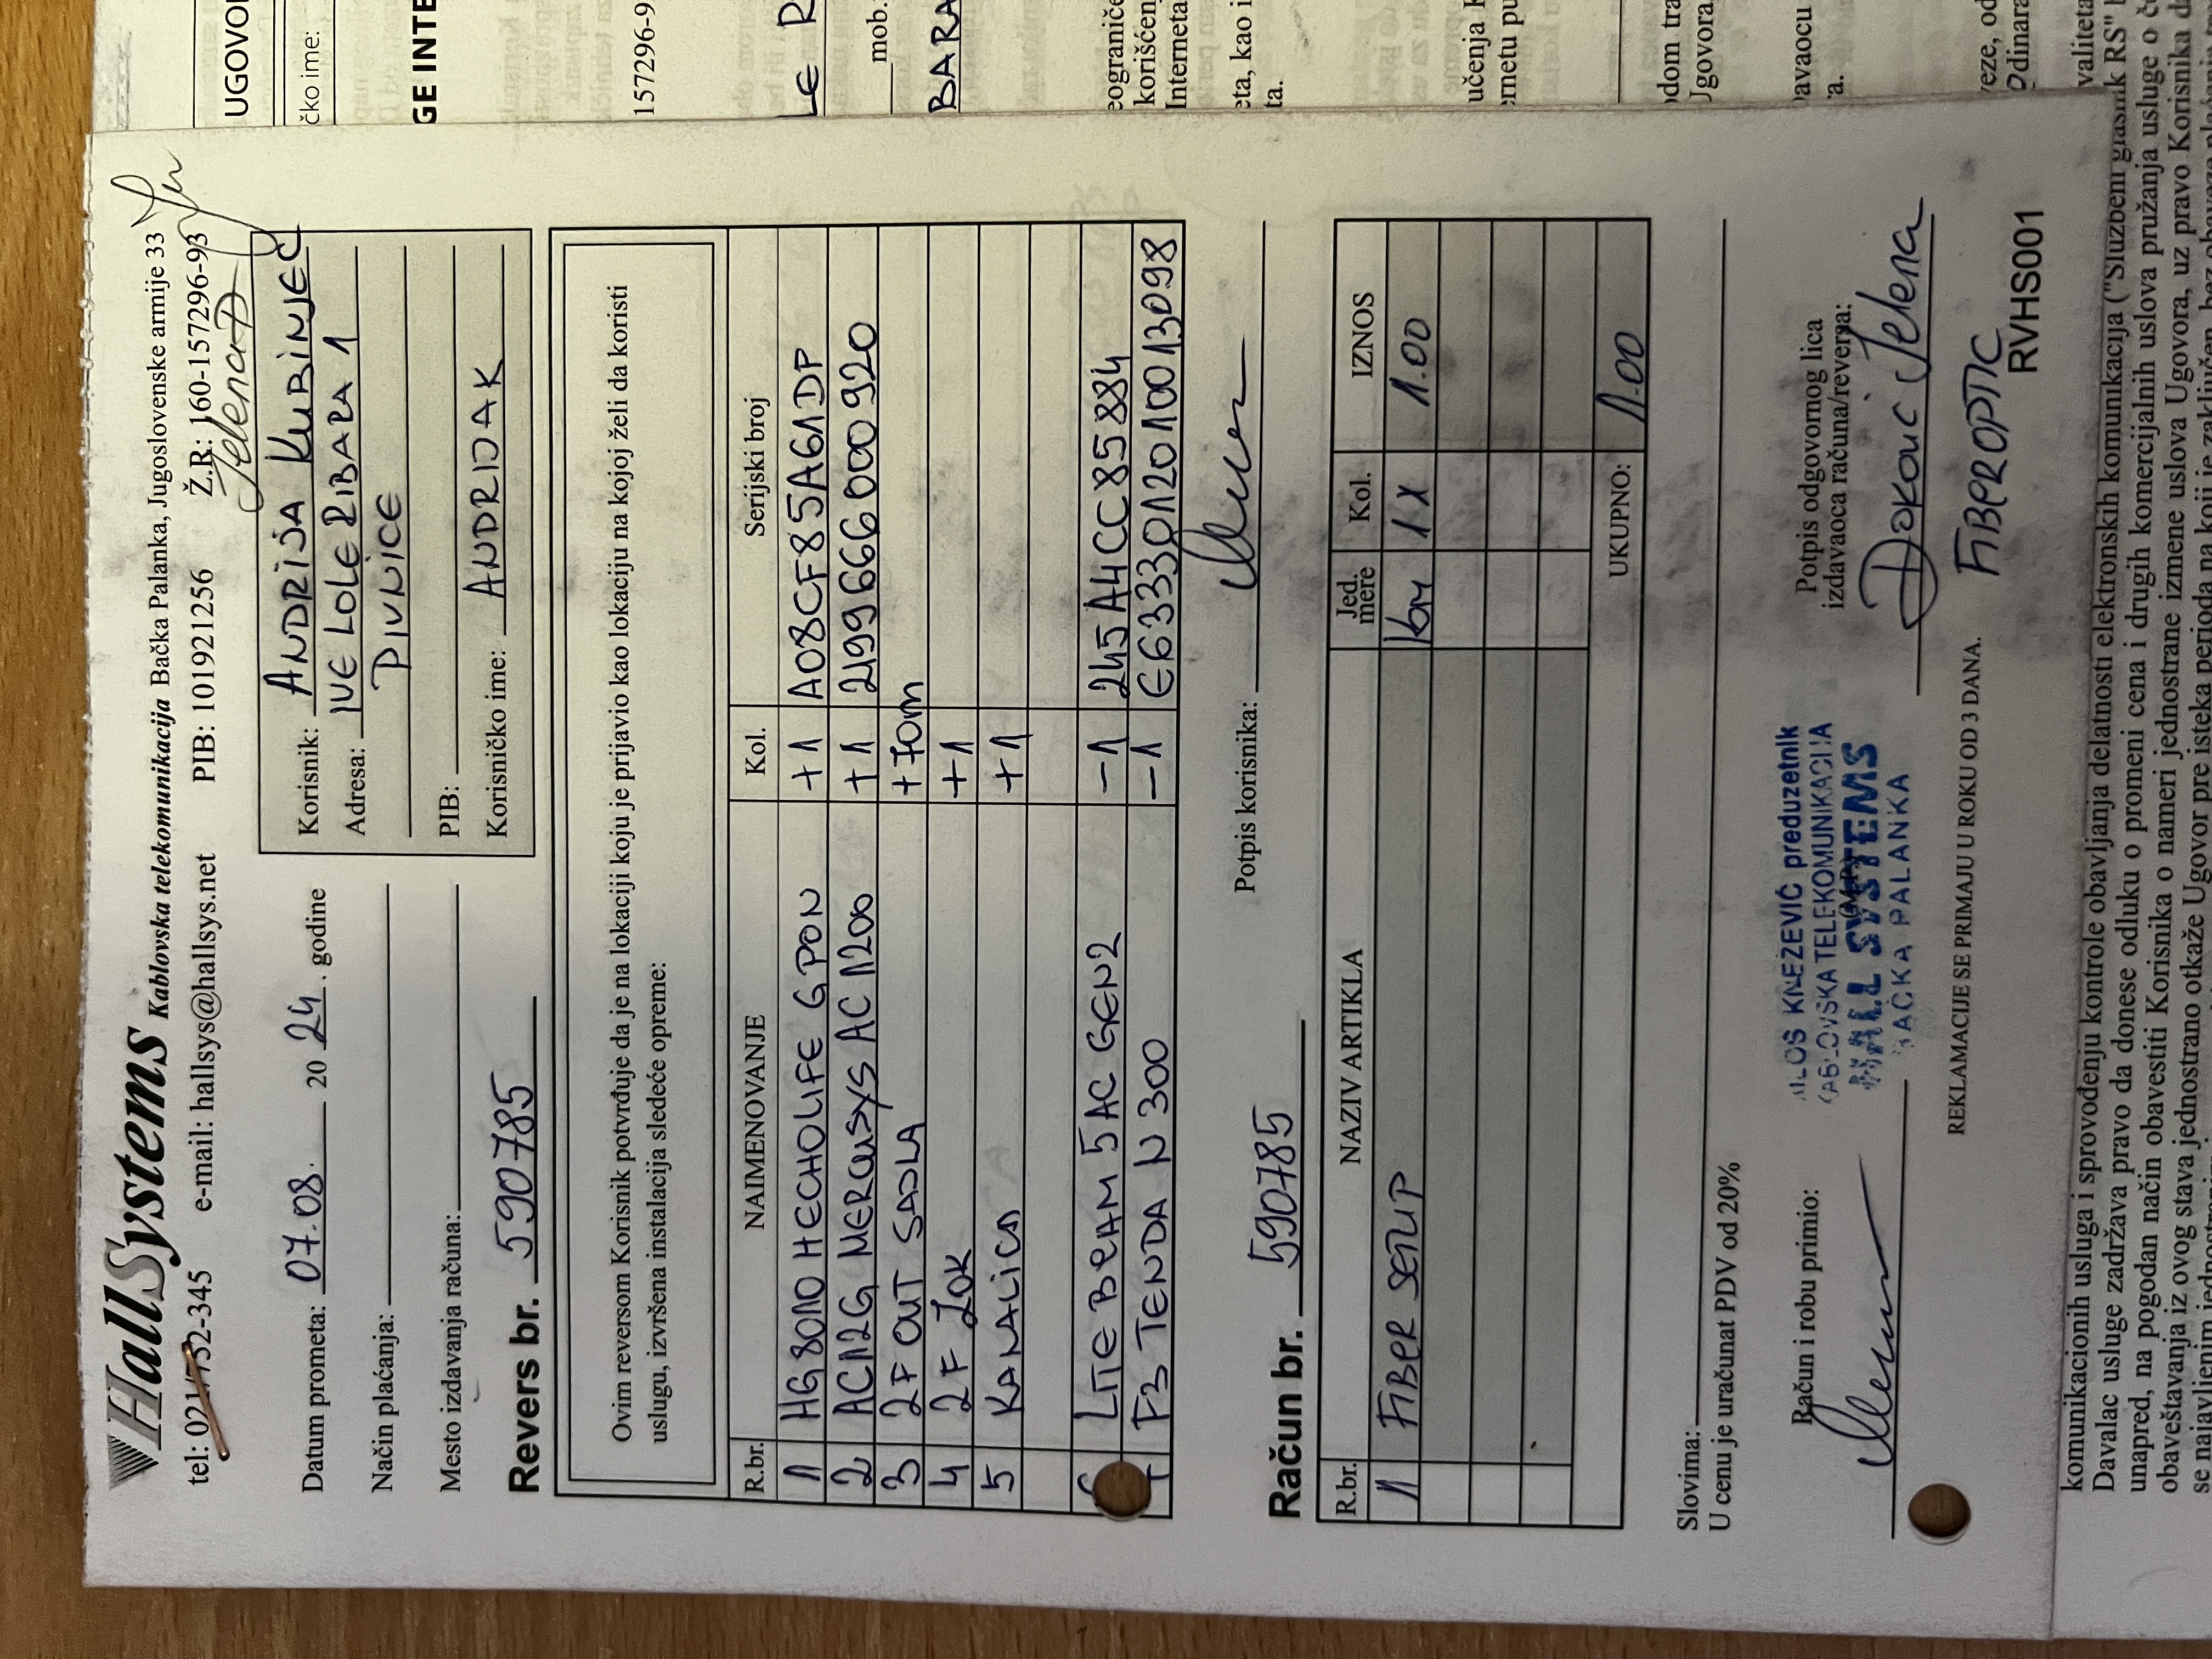 HallSystems Kablovska telekomunikacija Bačka Palanka, Jugoslovenske armije 33
tel: 021/752-345 e-mail: hallsys@hallsys.net PIB: 101921256 Ž.R: 160-157296-93
Jelena D
Datum prometa: 07.08. 20 24. godine
Način plaćanja:
Mesto izdavanja računa:
Korisnik: ANDRIJA KUBINJEC
Adresa: IVE LOLE RIBARA 1
PIVNICE
PIB:
Korisničko ime: ANDRIJAK
Revers br. 590785
Ovim reversom Korisnik potvrđuje da je na lokaciji koju je prijavio kao lokaciju na kojoj želi da koristi
uslugu, izvršena instalacija sledeće opreme:
R.br. NAIMENOVANJE Kol. Serijski broj
1 HG8010H ECHOLIFE GPON +1 A08CF85A61DP
2 AC12G MERCUSYS AC1200 +1 2199666000920
3 2F OUT SADLA +70m
4 2F ZOK +1
5 KANALICA +1
LITE BEAM 5AC GEN2 -1 245A4CC85884
F3 TENDA N300 -1 E6333012010013098
Potpis korisnika:
Račun br. 590785
R.br. NAZIV ARTIKLA Jed. mere Kol. IZNOS
1 FIBER SETUP kom 1x 1.00
UKUPNO: 1.00
Slovima:
U cenu je uračunat PDV od 20%
Račun i robu primio:
MILOŠ KNEŽEVIĆ preduzetnik
KABLOVSKA TELEKOMUNIKACIJA
HALL SYSTEMS
BAČKA PALANKA
Potpis odgovornog lica
izdavaoca računa/reversa:
Đokouc Jelena
REKLAMACIJE SE PRIMAJU U ROKU OD 3 DANA.
FIBEROPTIC
RVHS001
UGOVOR
čko ime:
GE INTE
157296-9
LE R
mob.
BARA
eograniče
korišćenj
Interneta
eta, kao i
ta.
učenja
metu pu
dom tra
Jgovora.
avaocu
'a.
veze, od
dinara
komunikacionih usluga i sprovođenju kontrole obavljanja delatnosti elektronskih komunikacija ("Službeni glasnik RS"
Davalac usluge zadržava pravo da donese odluku o promeni cena i drugih komercijalnih uslova pružanja usluge o
unapred, na pogodan način obavestiti Korisnika o nameri jednostrane izmene uslova Ugovora, uz pravo Korisnika da
obaveštavanja iz ovog stava jednostrano otkaže Ugovor pre isteka perioda na koji je zaključen bez obaveze
valiteta